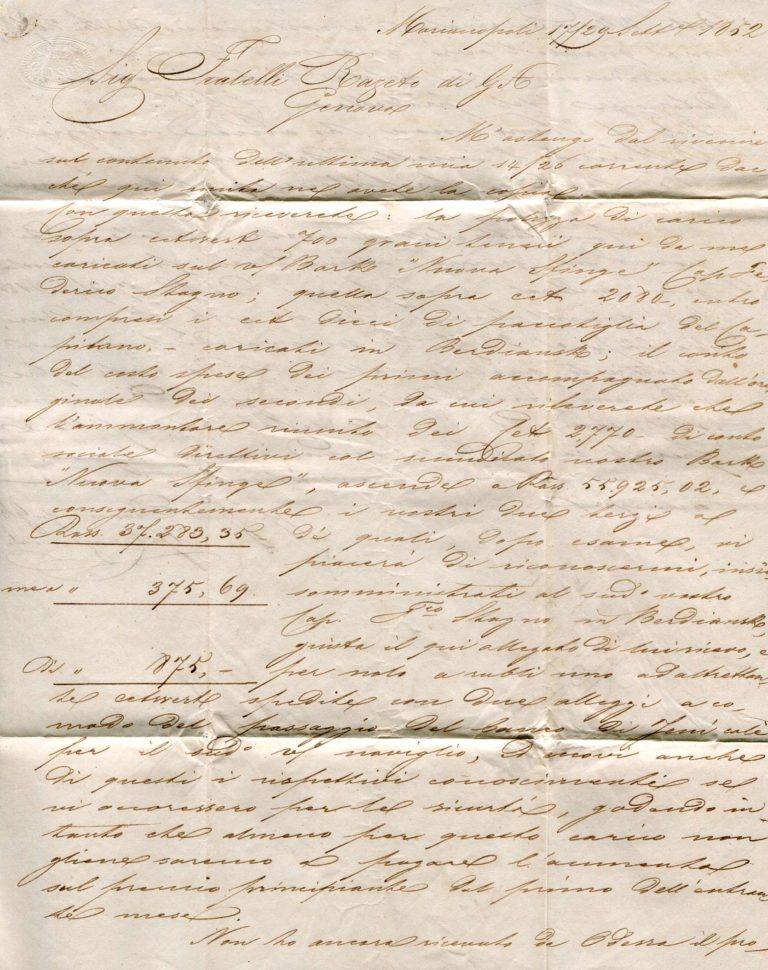 Marianopoli 17/29 Sett.e 1852
Sig Fratelli Razeto di GA
Genova
M'astengo dal rivenire
sul contenuto dell'ultima mia 14/26 corrente dac
chè qui unita ne avete la copia.
Con questa riceverete: la polizza di carico
sopra cetwert 700 grani teneri qui da me
caricati sul vo/ Bark "Nuova Sfinge" Cap Fe
derico Stagno; quella sopra cet 2080, entro
compresi i cet dieci di paccotiglia del Ca-
pitano, - caricati in Berdiansk; il conto
del costo spese dei primi accompagnato dall'ori
ginale dei secondi, da cui rileverete che
l'ammontare riunito dei Cet 2,770 - di conto
sociale direttivi col menzionato vostro Bark
"Nuova Sfinge", ascende a Rass 55,925,02, e
conseguentemente i vostri due terzi a
Rass 37.283,35 di quali, dopo esame, vi
piacerà di riconoscermi, insie
me a " 375,69. somministrati al sudo vostro
Cap. Fco Stagno in Berdiansk,
giusta il qui allegato di lui ricevo, e
Di " 875,- per nolo a rubli uno ad altrettan
te cetwert spedite con due alleggi a co
modo del passaggio del banco di Jeni calè
per il sudo vo/ naviglio, Di nuovi anche
di questi i rispettivi conoscimenti se
vi occoressero per le sicurtà, godendo in
tanto che almeno per questo carico non
gliene saremo a pagare l'aumento
sul premio principiante dal primo dell'entran
te mese.
Non ho ancora ricevuto da Odessa il pro